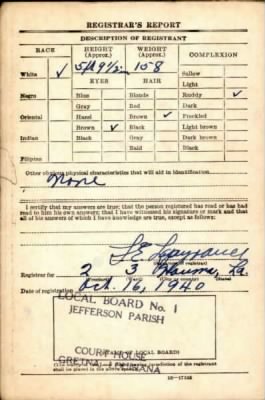 REGISTRAR'S REPORT
DESCRIPTION OF REGISTRANT
RACE HEIGHT (Approx.) WEIGHT (Approx.) COMPLEXION
White ✓ 5 ft 9 1/2 in 158 Sallow
EYES HAIR Light
Negro Blue Blonde Ruddy ✓
Gray Red Dark
Oriental Hazel Brown ✓ Freckled
Brown ✓ Black Light brown
Indian Black Gray Dark brown
Bald Black
Filipino
Other obvious physical characteristics that will aid in identification
None
I certify that my answers are true; that the person registered has read or has had
read to him his own answers; that I have witnessed his signature or mark and that
all of his answers of which I have knowledge are true, except as follows:
Registrar for 2 3 Houma, La
(Precinct) (Ward) (City or county) (State)
Date of registration Oct. 16, 1940
LOCAL BOARD No. 1
JEFFERSON PARISH
COURT HOUSE
GRETNA LOUISIANA
(STAMP OF LOCAL BOARD)
shall be placed in the above space.)